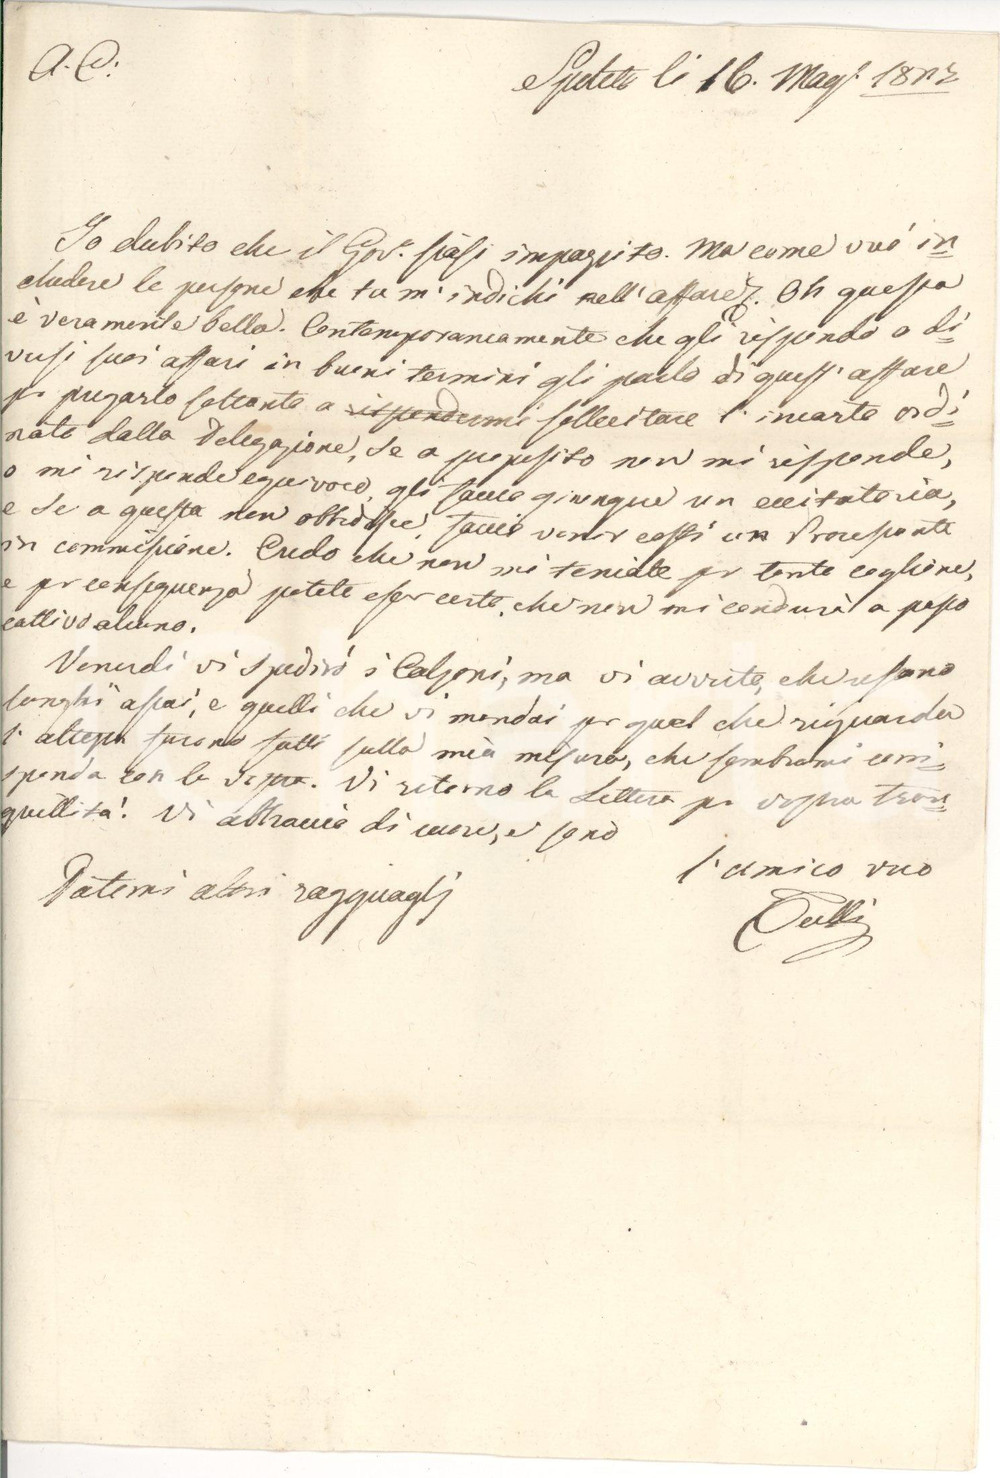 A. C:
Spoleto li 16. Magg. 18
Io dubito che il Gov.e siasi impazzito. Ma come vuò in=
cludere le persone che tu m'indichi nell'affare. Oh questa
è veramente bella. Contemporaneamente che gli rispondo a di=
versi suoi affari in buoni termini gli parlo di quest'affare
per pregarlo soltanto a rispondermi sollecitare l'incarto ordi=
nato dalla Delegazione, Se a proposito non mi risponde,
o mi risponde equivoco, gli faccio giungere un eccitatoria,
e se a questa non obbedisce, faccio venir costì un Processante
in commissione. Credo che non mi teniate per tanto coglione,
e per conseguenza potete esser certo, che non mi condurrà a passo
cattivo alcuno.
Venerdì vi spedirò i Calzoni, ma vi avverto, che restano
longhi assai, e quelli che vi mandai per quel che riguarda
l'altezza furono fatti sulla mia misura, che sembrami corri=
sponda con la vostra. Vi ritorno la Lettera per vostra tran=
quillità. Vi abbraccio di cuore, e sono
l'amico vro
Datemi altri ragguaglj